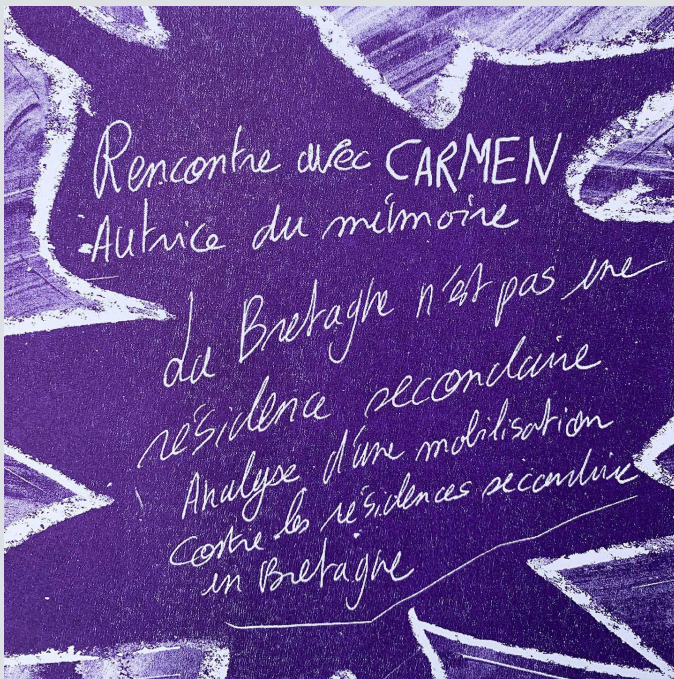 Rencontre avec CARMEN
Autrice du mémoire
La Bretagne n'est pas une
résidence secondaire.
Analyse d'une mobilisation
contre les résidences secondaire
en Bretagne